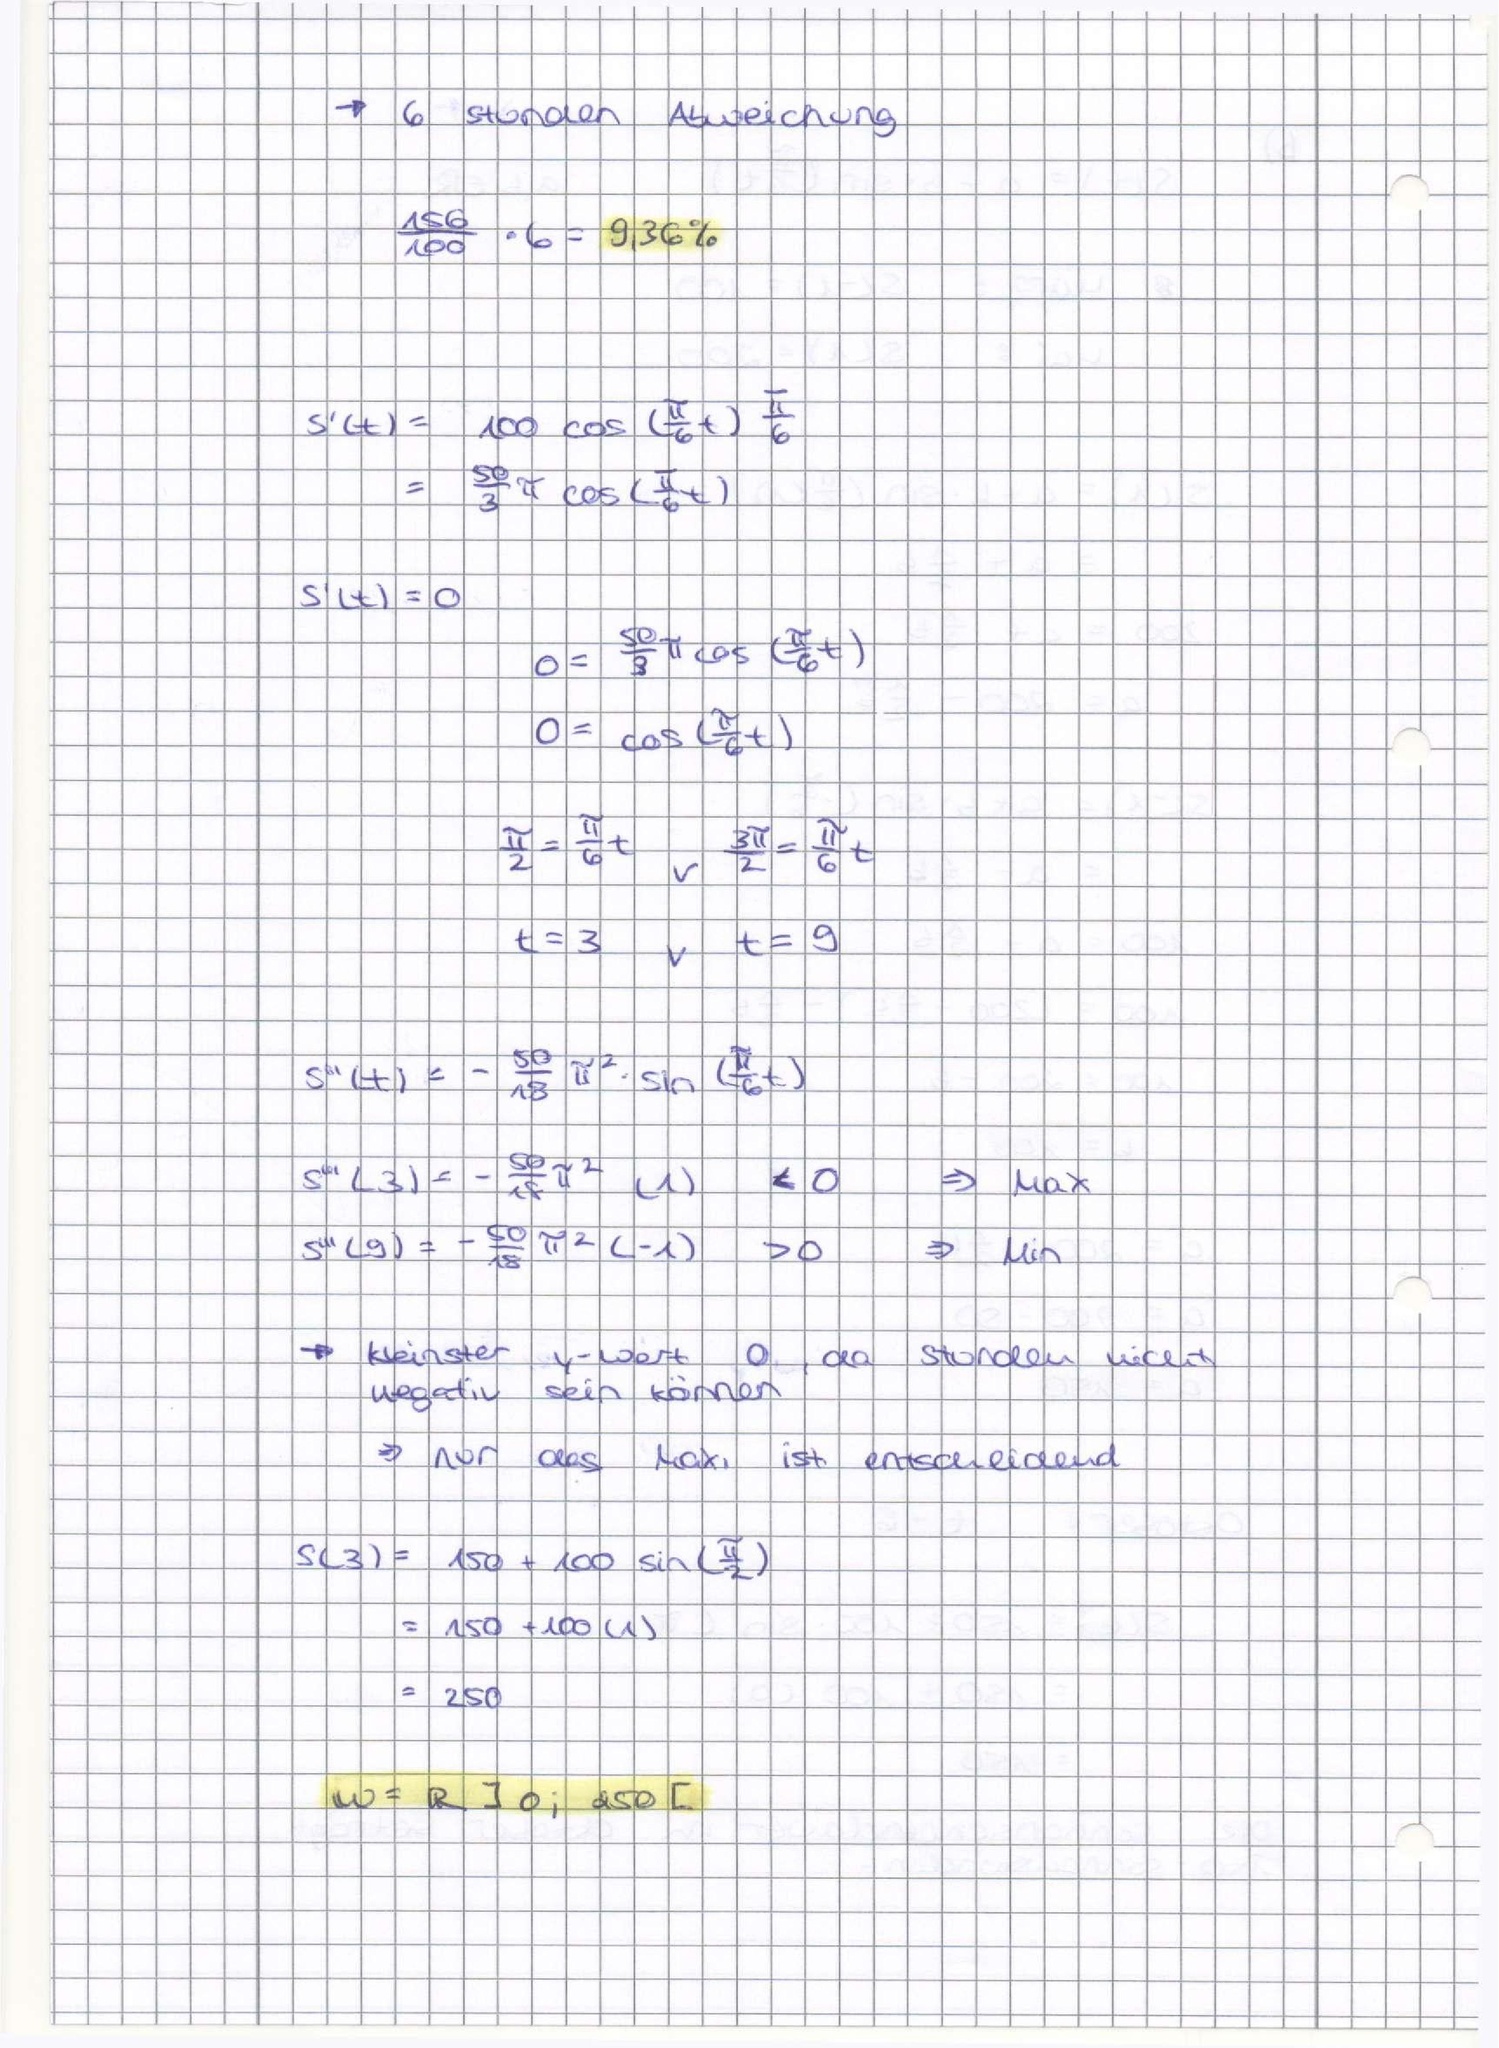 → 6 Stunden Abweichung
156/100 · 6 = 9,36%
S'(t) = 100 cos (π/6 t) π/6
= 50/3 π cos (π/6 t)
S'(t) = 0
0 = 50/3 π cos (π/6 t)
0 = cos (π/6 t)
π/2 = π/6 t v 3π/2 = π/6 t
t = 3 v t = 9
S'''(t) = - 50/18 π² · sin (π/6 t)
S'''(3) = - 50/18 π² (1) < 0 ⇒ Max
S'''(9) = - 50/18 π² (-1) > 0 ⇒ Min
→ kleinster y-Wert 0, da Stunden nicht
negativ sein können
⇒ nur das Max. ist entscheidend
S(3) = 150 + 100 sin (π/2)
= 150 + 100 (1)
= 250
W = ℝ ] 0; 250 [